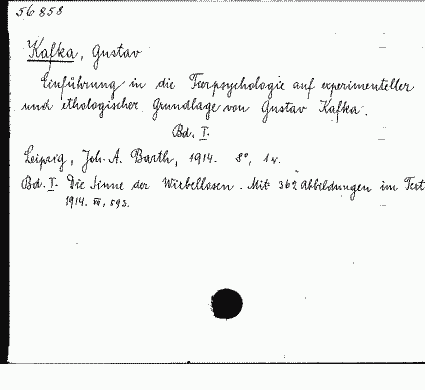 56858
Kafka, Gustav
Einführung in die Tierpsychologie auf experimenteller
und ethologischer Grundlage von Gustav Kafka.
Bd. I.
Leipzig, Joh. A. Barth, 1914. 8°, 1 v.
Bd. I. Die Sinne der Wirbellosen. Mit 362 Abbildungen im Text
1914. XII, 593.